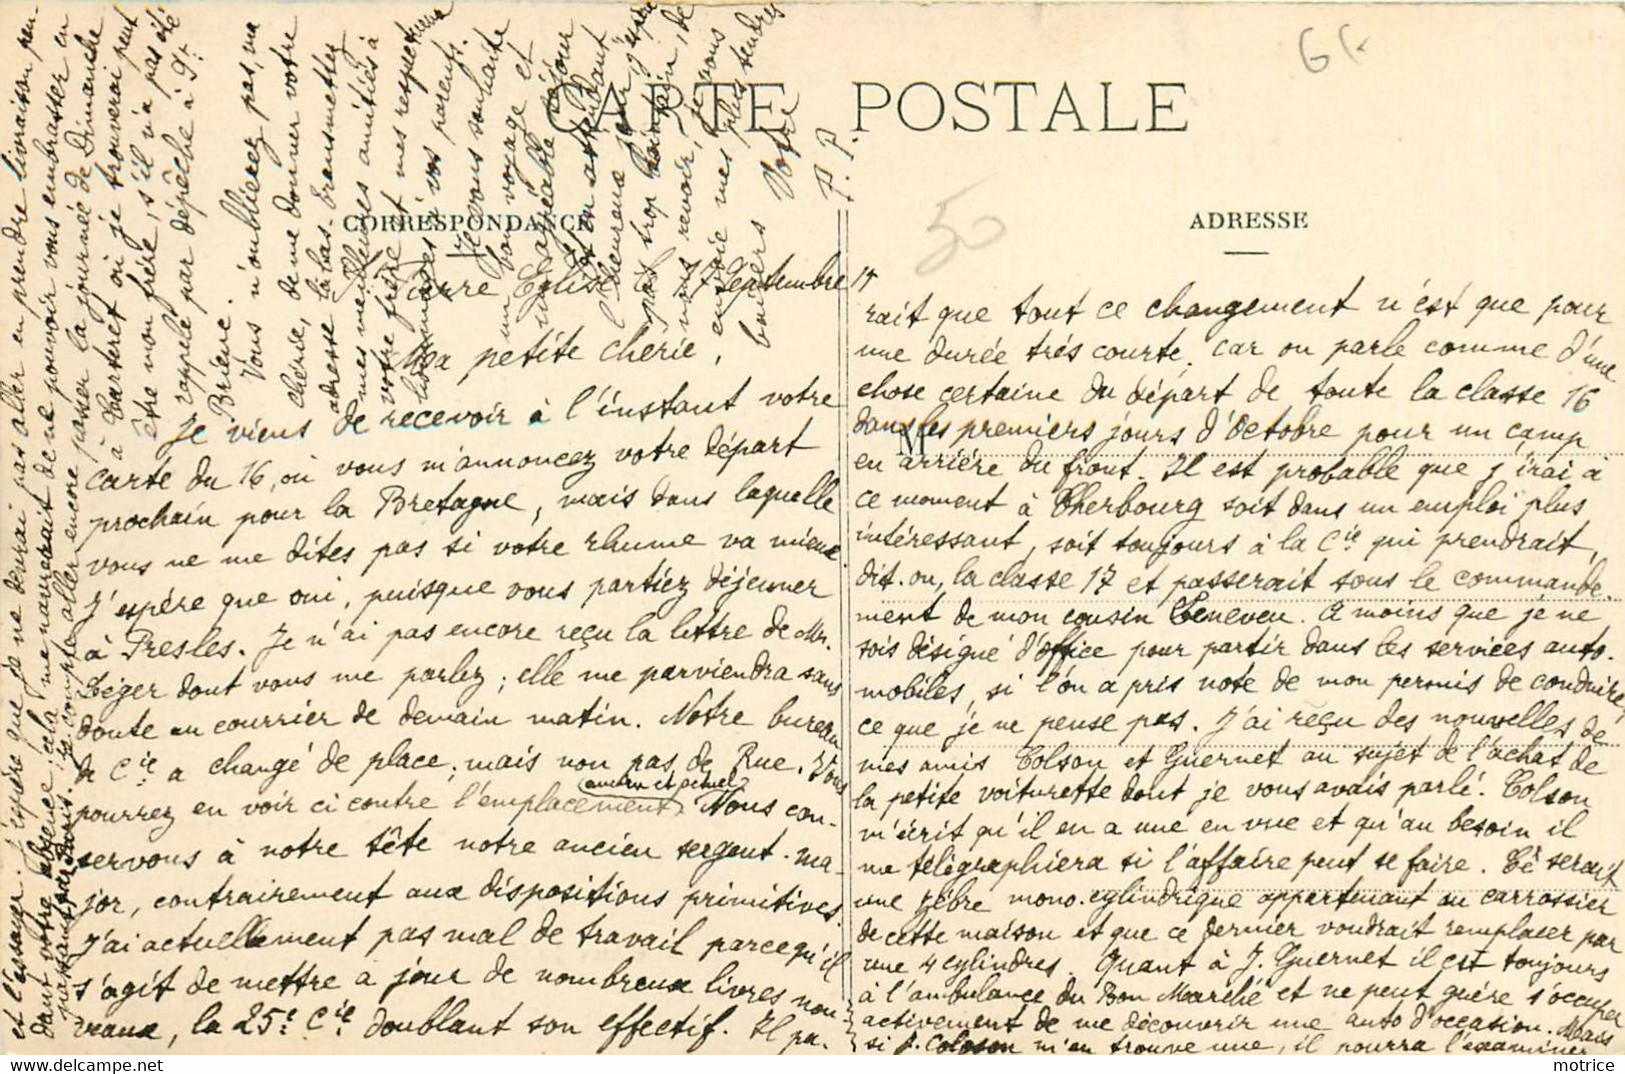 CARTE POSTALE
CORRESPONDANCE
ADRESSE
50
St Pierre Eglise le 17 Septembre 15
Ma petite chérie,
Je viens de recevoir à l'instant votre
carte du 16, où vous m'annoncez votre départ
prochain pour la Bretagne, mais dans laquelle
vous ne me dites pas si votre rhume va mieux.
J'espère que oui, puisque vous partiez déjeuner
à Presles. Je n'ai pas encore reçu la lettre de Mr.
Léger dont vous me parlez; elle me parviendra sans
doute au courrier de demain matin. Notre bureau
de Cie a changé de place; mais non pas de Rue. Vous
pourrez en voir ci contre l'emplacement
ancien et actuel
Nous con-
servons à notre tête notre ancien sergent-ma-
jor, contrairement aux dispositions primitives.
J'ai actuellement pas mal de travail parcequ'il
s'agit de mettre à jour de nombreux livres nou-
veaux, la 25e Cie doublant son effectif. Il pa-
rait que tout ce changement n'est que pour
une durée très courte, car on parle comme d'une
chose certaine du départ de toute la classe 16
dans les premiers jours d'Octobre pour un camp
M
en arrière du front. Il est probable que j'irai à
ce moment à Cherbourg soit dans un emploi plus
intéressant, soit toujours à la Cie qui prendrait,
dit-on, la classe 17 et passerait sous le commande-
ment de mon cousin Teneveu. A moins que je ne
sois désigné d'office pour partir dans les services auto-
mobiles, si l'on a pris note de mon permis de conduire,
ce que je ne pense pas. J'ai reçu des nouvelles de
mes amis Colson et Guernet au sujet de l'achat de
la petite voiturette dont je vous avais parlé. Colson
m'écrit qu'il en a une en vue et qu'au besoin il
me télégraphiera si l'affaire peut se faire. Ce serait
une Zèbre mono-cylindrique appartenant au carrossier
de cette maison et que ce dernier voudrait remplacer par
une 4 cylindres. Quant à J. Guernet il est toujours
à l'ambulance du Bon Marché et ne peut guère s'occuper
activement de me découvrir une auto d'occasion. Mais
si Colson m'en trouve une, il pourra l'examiner
et l'essayer. J'espère que je ne devrai pas aller en prendre livraison pen-
dant votre absence; cela me navrerait de ne pouvoir vous embrasser en
passant par Paris. Je compte aller encore passer la journée de Dimanche
à Carteret où je trouverai peut
être mon frère, s'il n'a pas été
rappelé par dépêche à St
Brieuc.
Vous n'oublierez pas, ma
chérie, de me donner votre
adresse là-bas. Transmettez
mes meilleures amitiés à
votre frère et mes respectueux
hommages à vos parents.
Je vous souhaite
un bon voyage et
un agréable séjour
et en attendant
l'heureux jour, j'espère
pas trop lointain, de
vous revoir, je vous
envoie mes plus tendres
baisers
Votre
P. P.